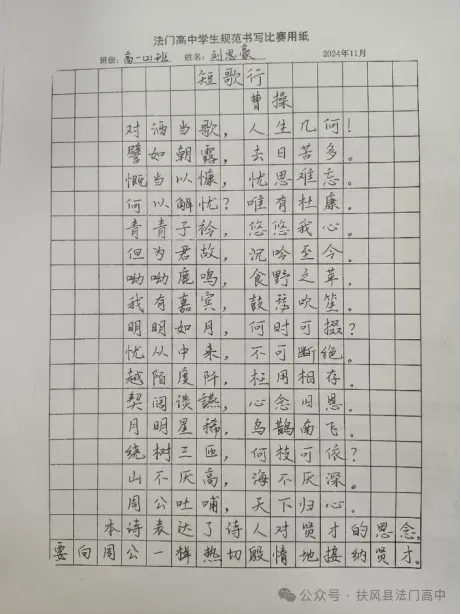 法门高中学生规范书写比赛用纸
班级：高一(1)班 姓名：刘思豪 2024年11月
短歌行
曹操
对酒当歌，人生几何！
譬如朝露，去日苦多。
慨当以慷，忧思难忘。
何以解忧？唯有杜康。
青青子衿，悠悠我心。
但为君故，沉吟至今。
呦呦鹿鸣，食野之苹。
我有嘉宾，鼓瑟吹笙。
明明如月，何时可掇？
忧从中来，不可断绝。
越陌度阡，枉用相存。
契阔谈讌，心念旧恩。
月明星稀，乌鹊南飞。
绕树三匝，何枝可依？
山不厌高，海不厌深。
周公吐哺，天下归心。
本诗表达了诗人对贤才的思念，
要向周公一样热切殷情地接纳贤才。
公众号·扶风县法门高中